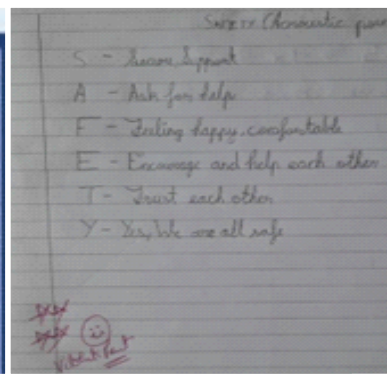 SAFETY (Acroustic
S - Secure, Support
A - Ask for help
F - Feeling happy, comfortable
E - Encourage and help each other
T - Trust each other
Y - Yes, We are all safe